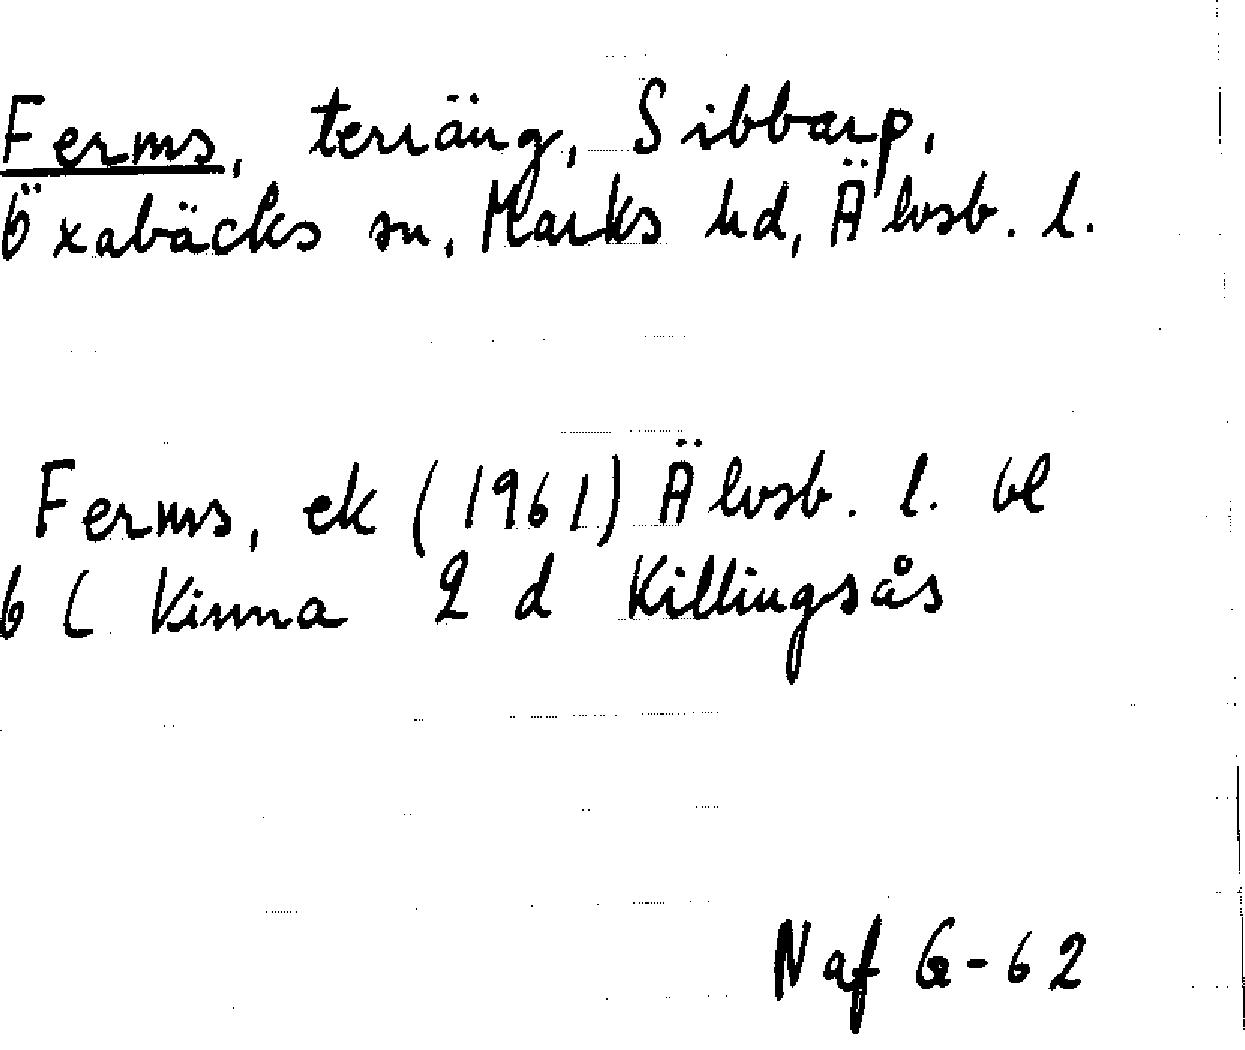 Ferms, terräng, Sibbarp,
Öxabäcks sn, Marks hd, Älvsb. l.
Ferms, ek (1961) Älvsb. l. bl
6 C Kinna 2 d Killingsås
Naf G-62